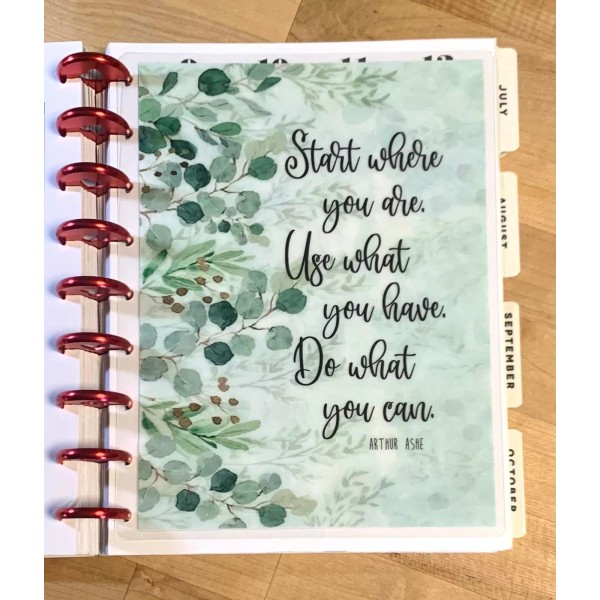 Start where
you are.
Use what
you have.
Do what
you can.
ARTHUR ASHE
JULY
AUGUST
SEPTEMBER
OCTOBER